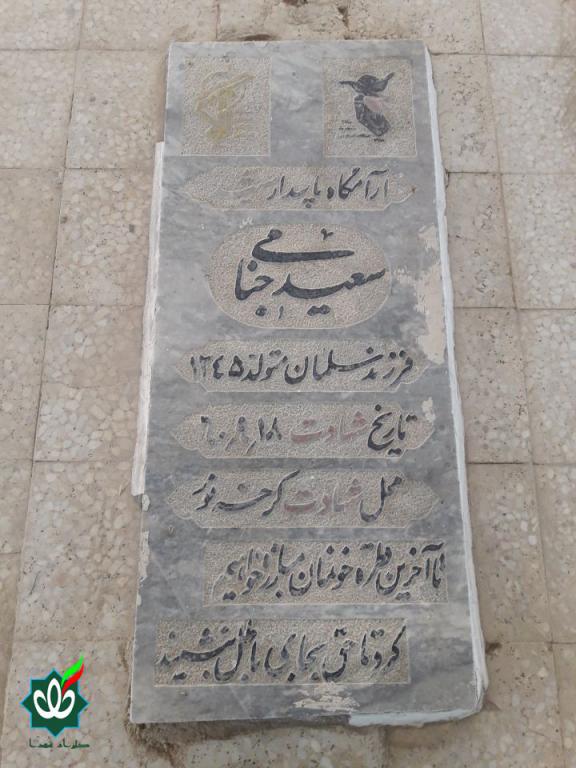 آرامگاه پاسدار شهید
سعید جنامی
فرزند سلمان متولد ۱۳۴۵
تاریخ شهادت ۶۰٫۹٫۱۸
محل شهادت کرخه نور
تا آخرین قطره خونمان مبارزه خواهیم
کرد تا حق بجای باطل بنشیند
گلزار شهدا